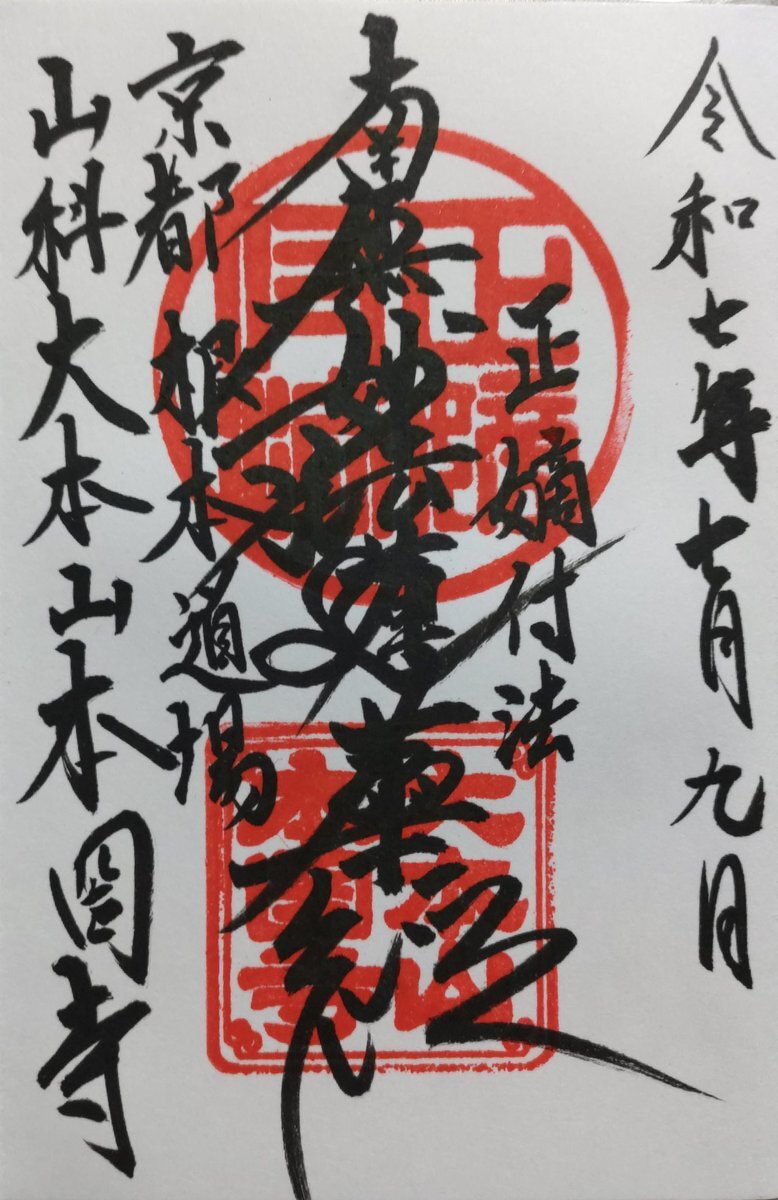 令和七年七月九日
正嫡付法
南無妙法蓮華経
京都 根本道場
山科大本山本圀寺
大本山
本圀寺